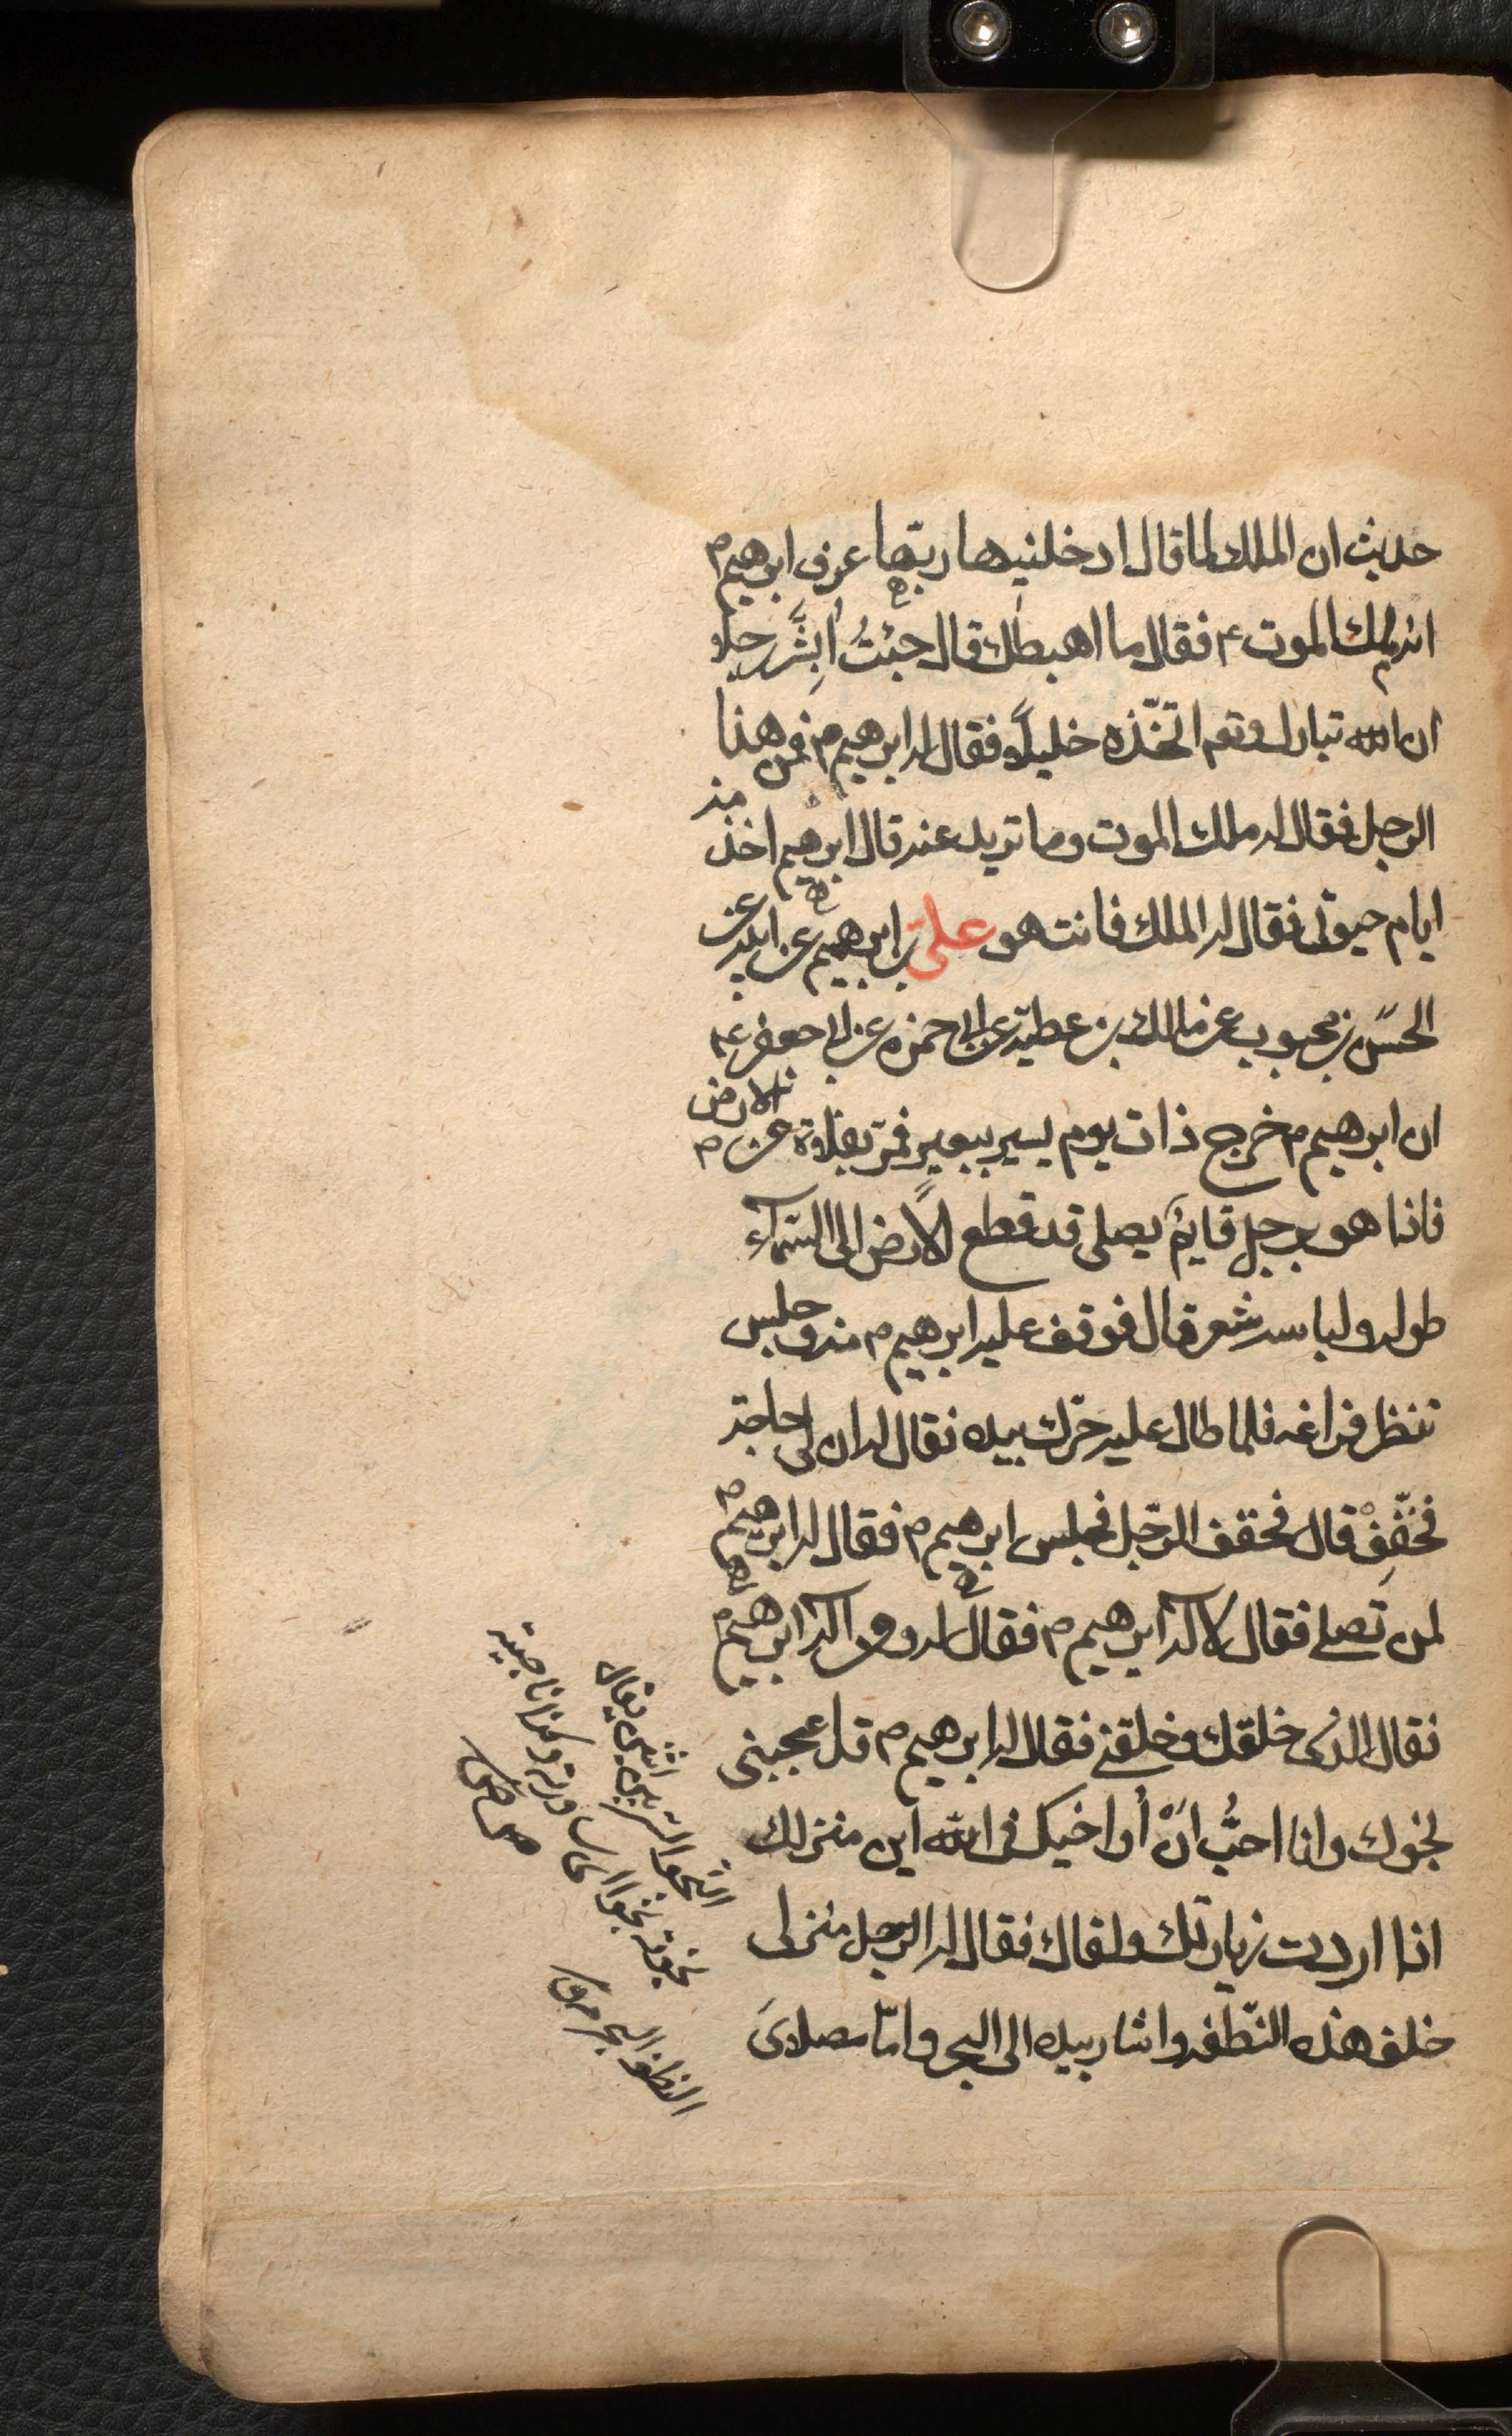 حديث ان الملك لما قال ادخلنيها ربّها عرف ابرهيم م
انه ملك الموت ع م فقال ما اهبطك قال جئتُ اُبشّر رجلا
ان الله تبارك وتع اتخّذه خليلاً فقال له ابرهيم م فمن هذا
الرجل فقال له ملك الموت وما تريد منه قال ابرهيم اخدمه
ايام حيوتى فقال له الملك فانت هو علىّ بن ابرهيم عن ابيه عن
الحسَن بن محبوب عن مالك بن عطيّة عن ابى حمزه عن ابى جعفر ع م
ان ابرهيم م خرج ذات يوم يسير ببعيرٍ فمرّ بفلاة من الارض
فاذا هو برجلٍ قايمٌ يصلى قد قطع الارض الى السّماء
طوله ولباسه شعر قال فوقف عليه ابرهيم م منه وجلس
ننظر فراغه فلما طال عليه حرّكه بيده فقال له ان لى حاجة
فخفّف قال فخفف الرّجل فجلس ابرهيم م فقال له ابرهيم م
لمن تصلى فقال لاله ابرهيم م فقال له ومن اله ابرهيم م
فقال الذى خلقك وخلقنى فقال له ابرهيم م قد عجبنى
نحوك وانا احبُّ انْ اُواخيك فى الله اين منزلك
اذا اردت زيارتك ولقاك فقال له الرجل منزلى
خلف هذه النّطفه واشار بيده الى البحر وامّا مصلاىَ
النحو
النطفة البحر